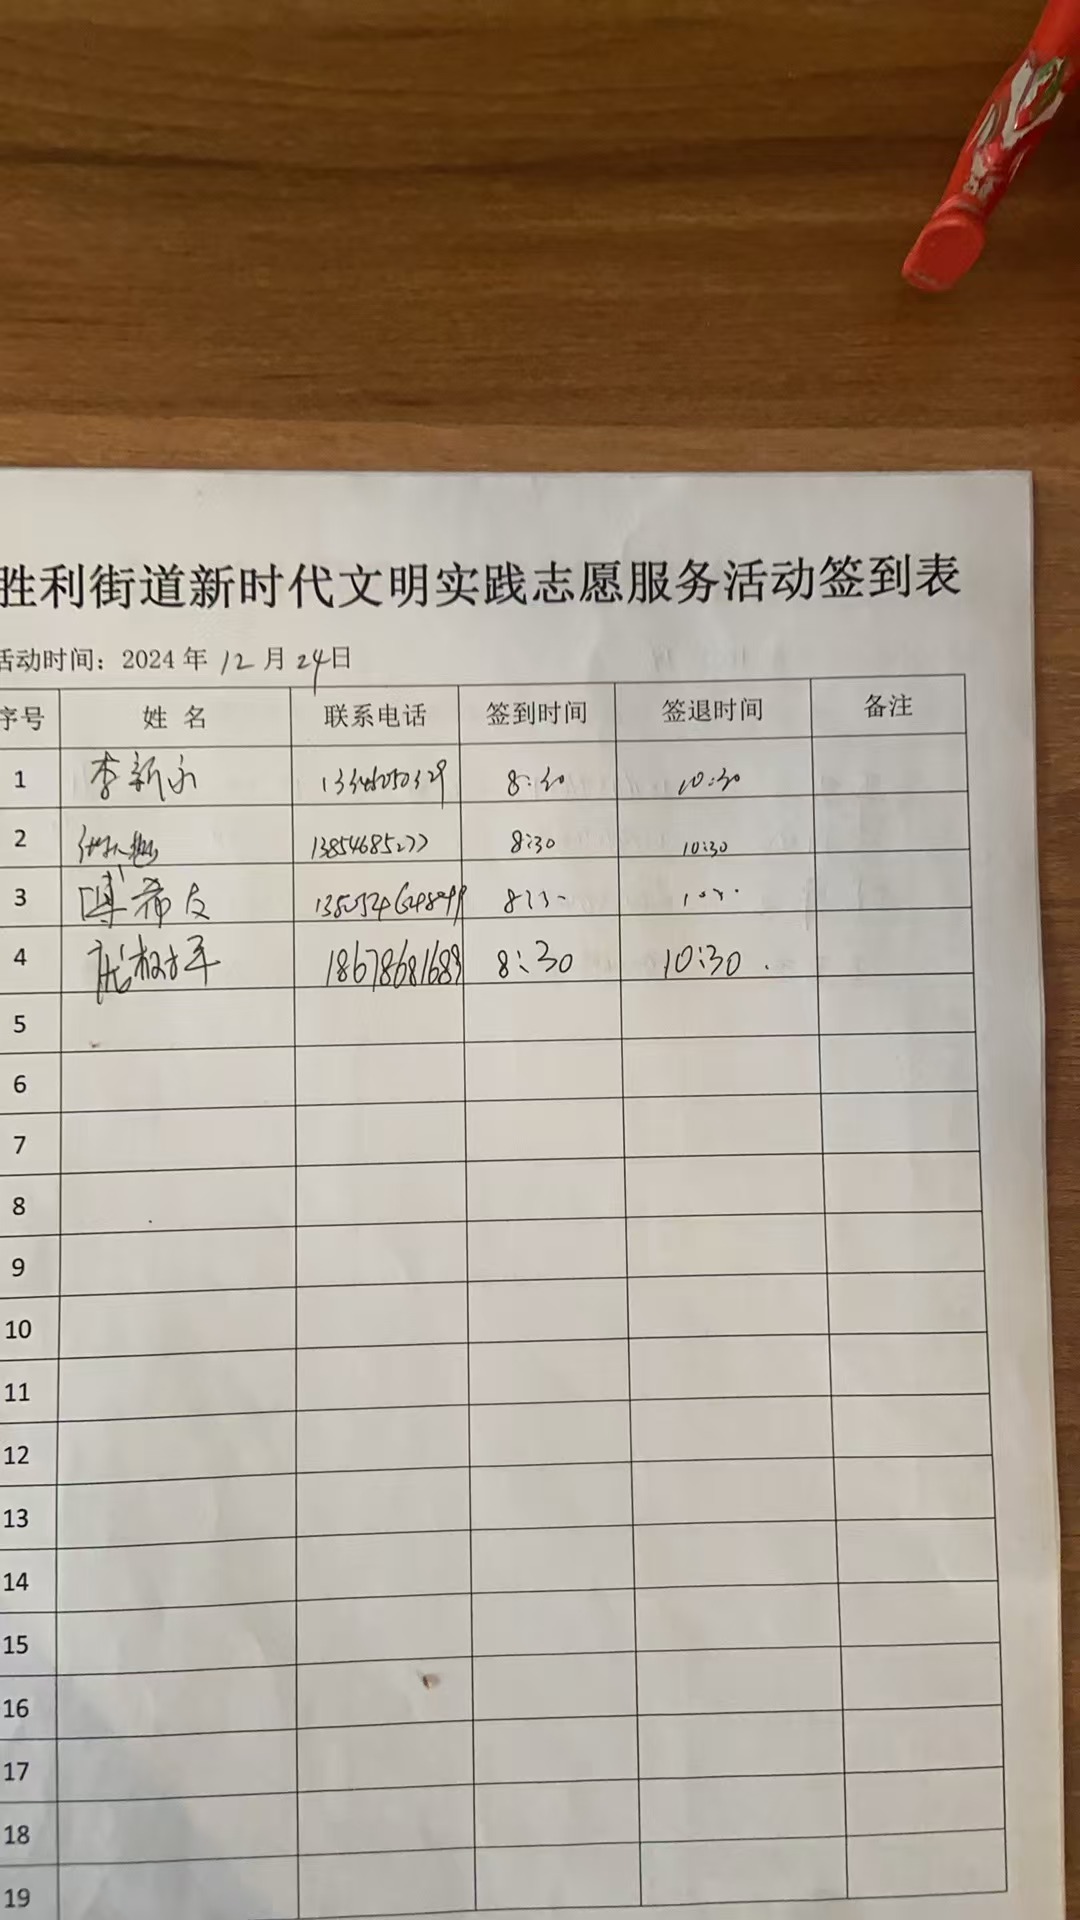 胜利街道新时代文明实践志愿服务活动签到表
活动时间：2024年 12月 24日
序号 姓 名 联系电话 签到时间 签退时间 备注
1 李新永 8:30 10:30
2 13854685277 8:30 10:30
3 希友
4 18678681689 8:30 10:30
5
6
7
8
9
10
11
12
13
14
15
16
17
18
19